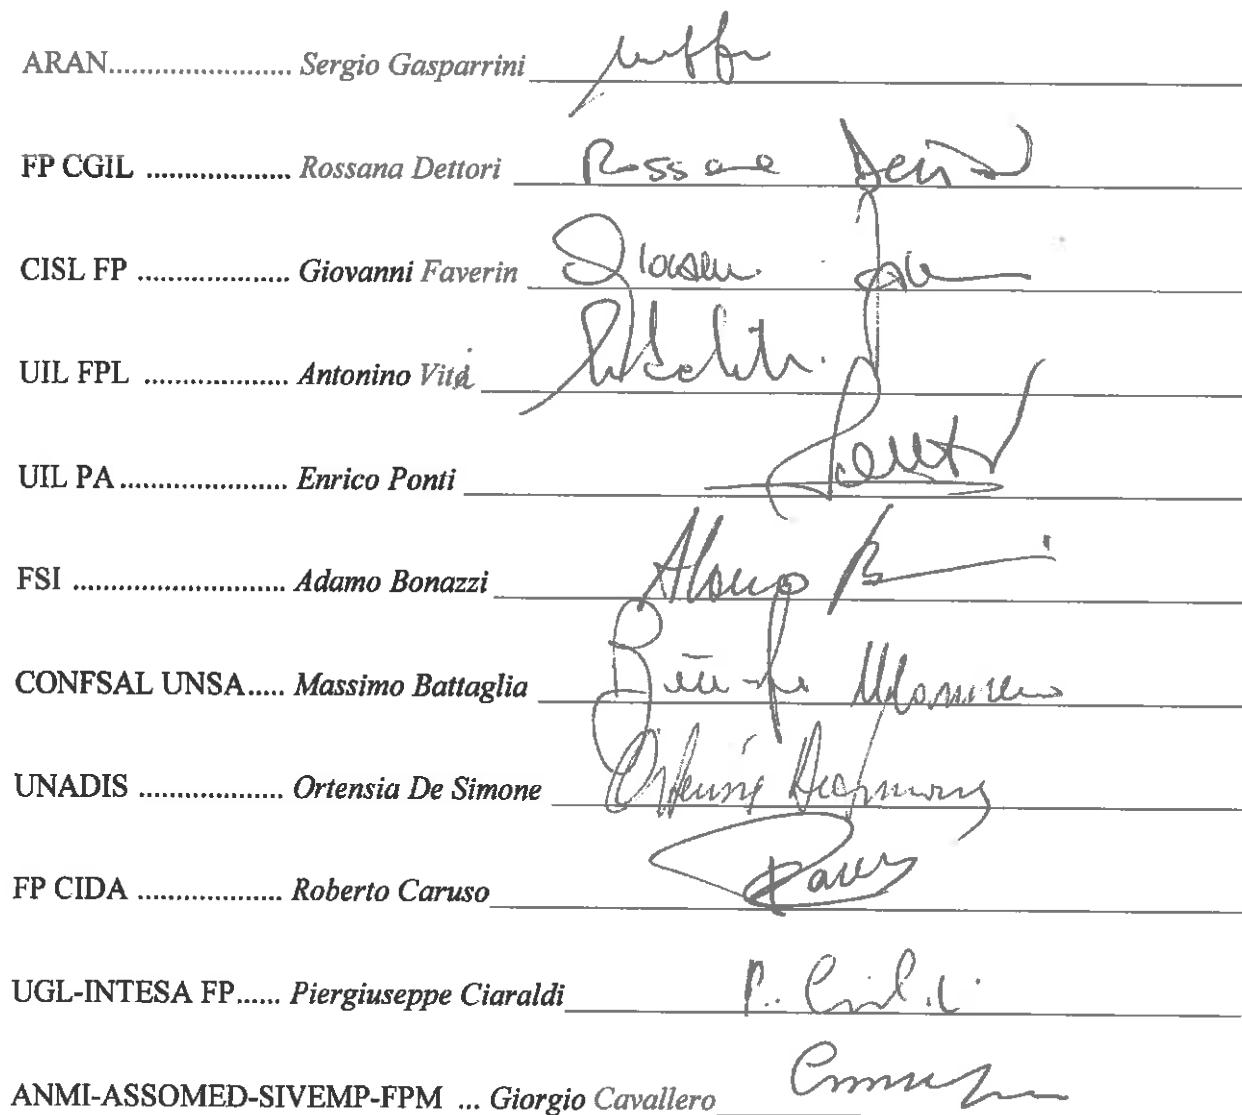 ARAN........................ Sergio Gasparrini
FP CGIL ................... Rossana Dettori Rossana Dettori
CISL FP .................... Giovanni Faverin
UIL FPL ................... Antonino Viti
UIL PA...................... Enrico Ponti
FSI ............................ Adamo Bonazzi Adamo B
CONFSAL UNSA..... Massimo Battaglia Massimo
UNADIS ................... Ortensia De Simone Ortensia De Simone
FP CIDA ................... Roberto Caruso
UGL-INTESA FP...... Piergiuseppe Ciaraldi P. Ciaraldi
ANMI-ASSOMED-SIVEMP-FPM ... Giorgio Cavallero